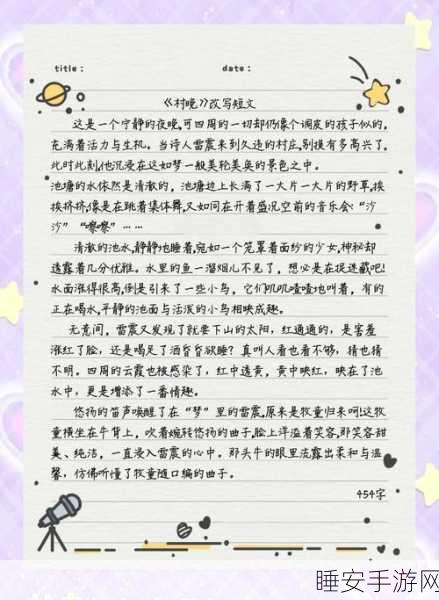 title: date:
《村晚》改写短文
这是一个宁静的夜晚,可四周的一切却仍像个调皮的孩子似的,
充满着活力与生机。当诗人雷震来到久违的村庄,别提有多高兴了,
此时此刻,他沉浸在这如梦一般美轮美奂的景色之中。
池塘的水依然是清澈的,池塘边上长满了一大片一大片的野草,挨
挨挤挤,像是在跳着集体舞,又如同在开着盛况空前的音乐会:“沙
沙”“嚓嚓”……
清澈的池水,静静地睡着,宛如一个笼罩着面纱的少女,神秘却
透露着几分优雅。水里的鱼一溜烟儿不见了,想必是在捉迷藏吧!
水面涨得很高,倒是引来了一些小鸟,它们叽叽喳喳地叫着,有的
正在喝水,平静的池面与活泼的小鸟相映成趣。
无意间,雷震又发现了就要下山的太阳,红通通的,是害羞
涨红了脸,还是喝足了酒昏昏欲睡?真叫人看也看不够,猜也猜
不明。四周的云霞也被感染了,红中透黄,黄中映红,映在了池
水中,更是增添了一番情趣。
悠扬的笛声唤醒了在“梦”里的雷震,原来是牧童归来呵!这牧
童横坐在牛背上,吹着婉转悠扬的曲子,脸上洋溢着笑容,那笑容甜
美、纯洁,一直浸入雷震的心中。那头牛的眼里流露出柔和与温
馨,仿佛听懂了牧童随口编的曲子。
454字
睡安手游网